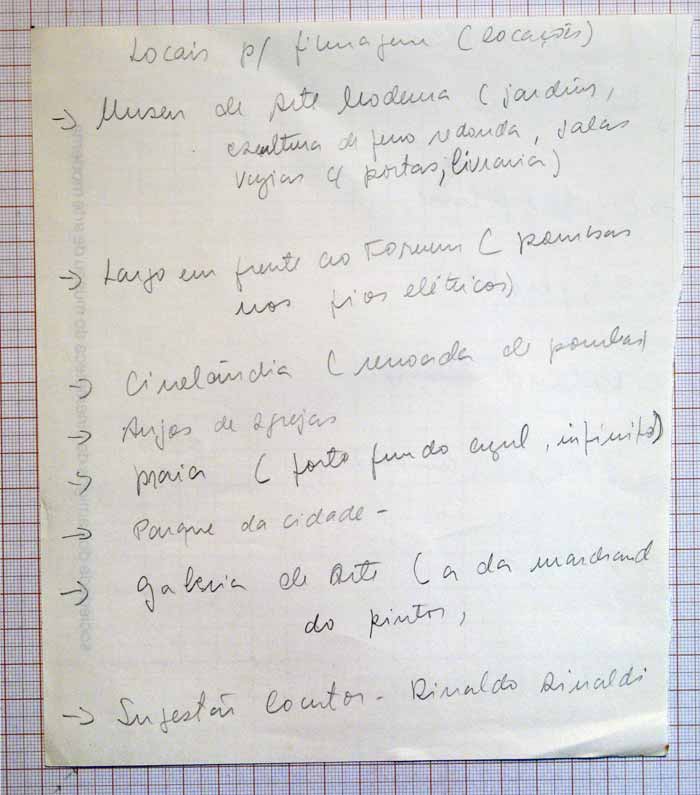 Locais p/ filmagem (locações)
→ Museu de Arte Moderna (jardins,
escultura de ferro redonda, salas
vazias c/ portas, livraria)
→ Largo em frente ao Forum (pombas
nos fios elétricos)
→ Cinelândia (revoada de pombas)
→ Anjos de igrejas
→ praia (forte fundo azul, infinito)
→ Parque da cidade -
→ galeria de Arte (a da marchand
do pintor,
→ Sugestão locutor - Rinaldo Rinaldi
sociedade de amigos da cinemateca do museu de arte moderna